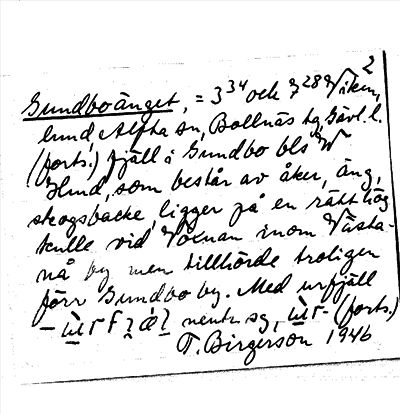 2
Gundboänget, = 3 34 och 7 28 Viken,
lund, Alfta sn, Bollnäs tg, Gävl. l.
(forts.) fjäll i Gundbo bls
Hmd, som består av åker, äng,
skogsbacke, ligger på en rätt hög
kulle vid Voxnan inom Västa-
nå by men tillhörde troligen
förr Gundbo by. Med urfjäll
neutr. sg, (forts.)
T. Birgerson 1946